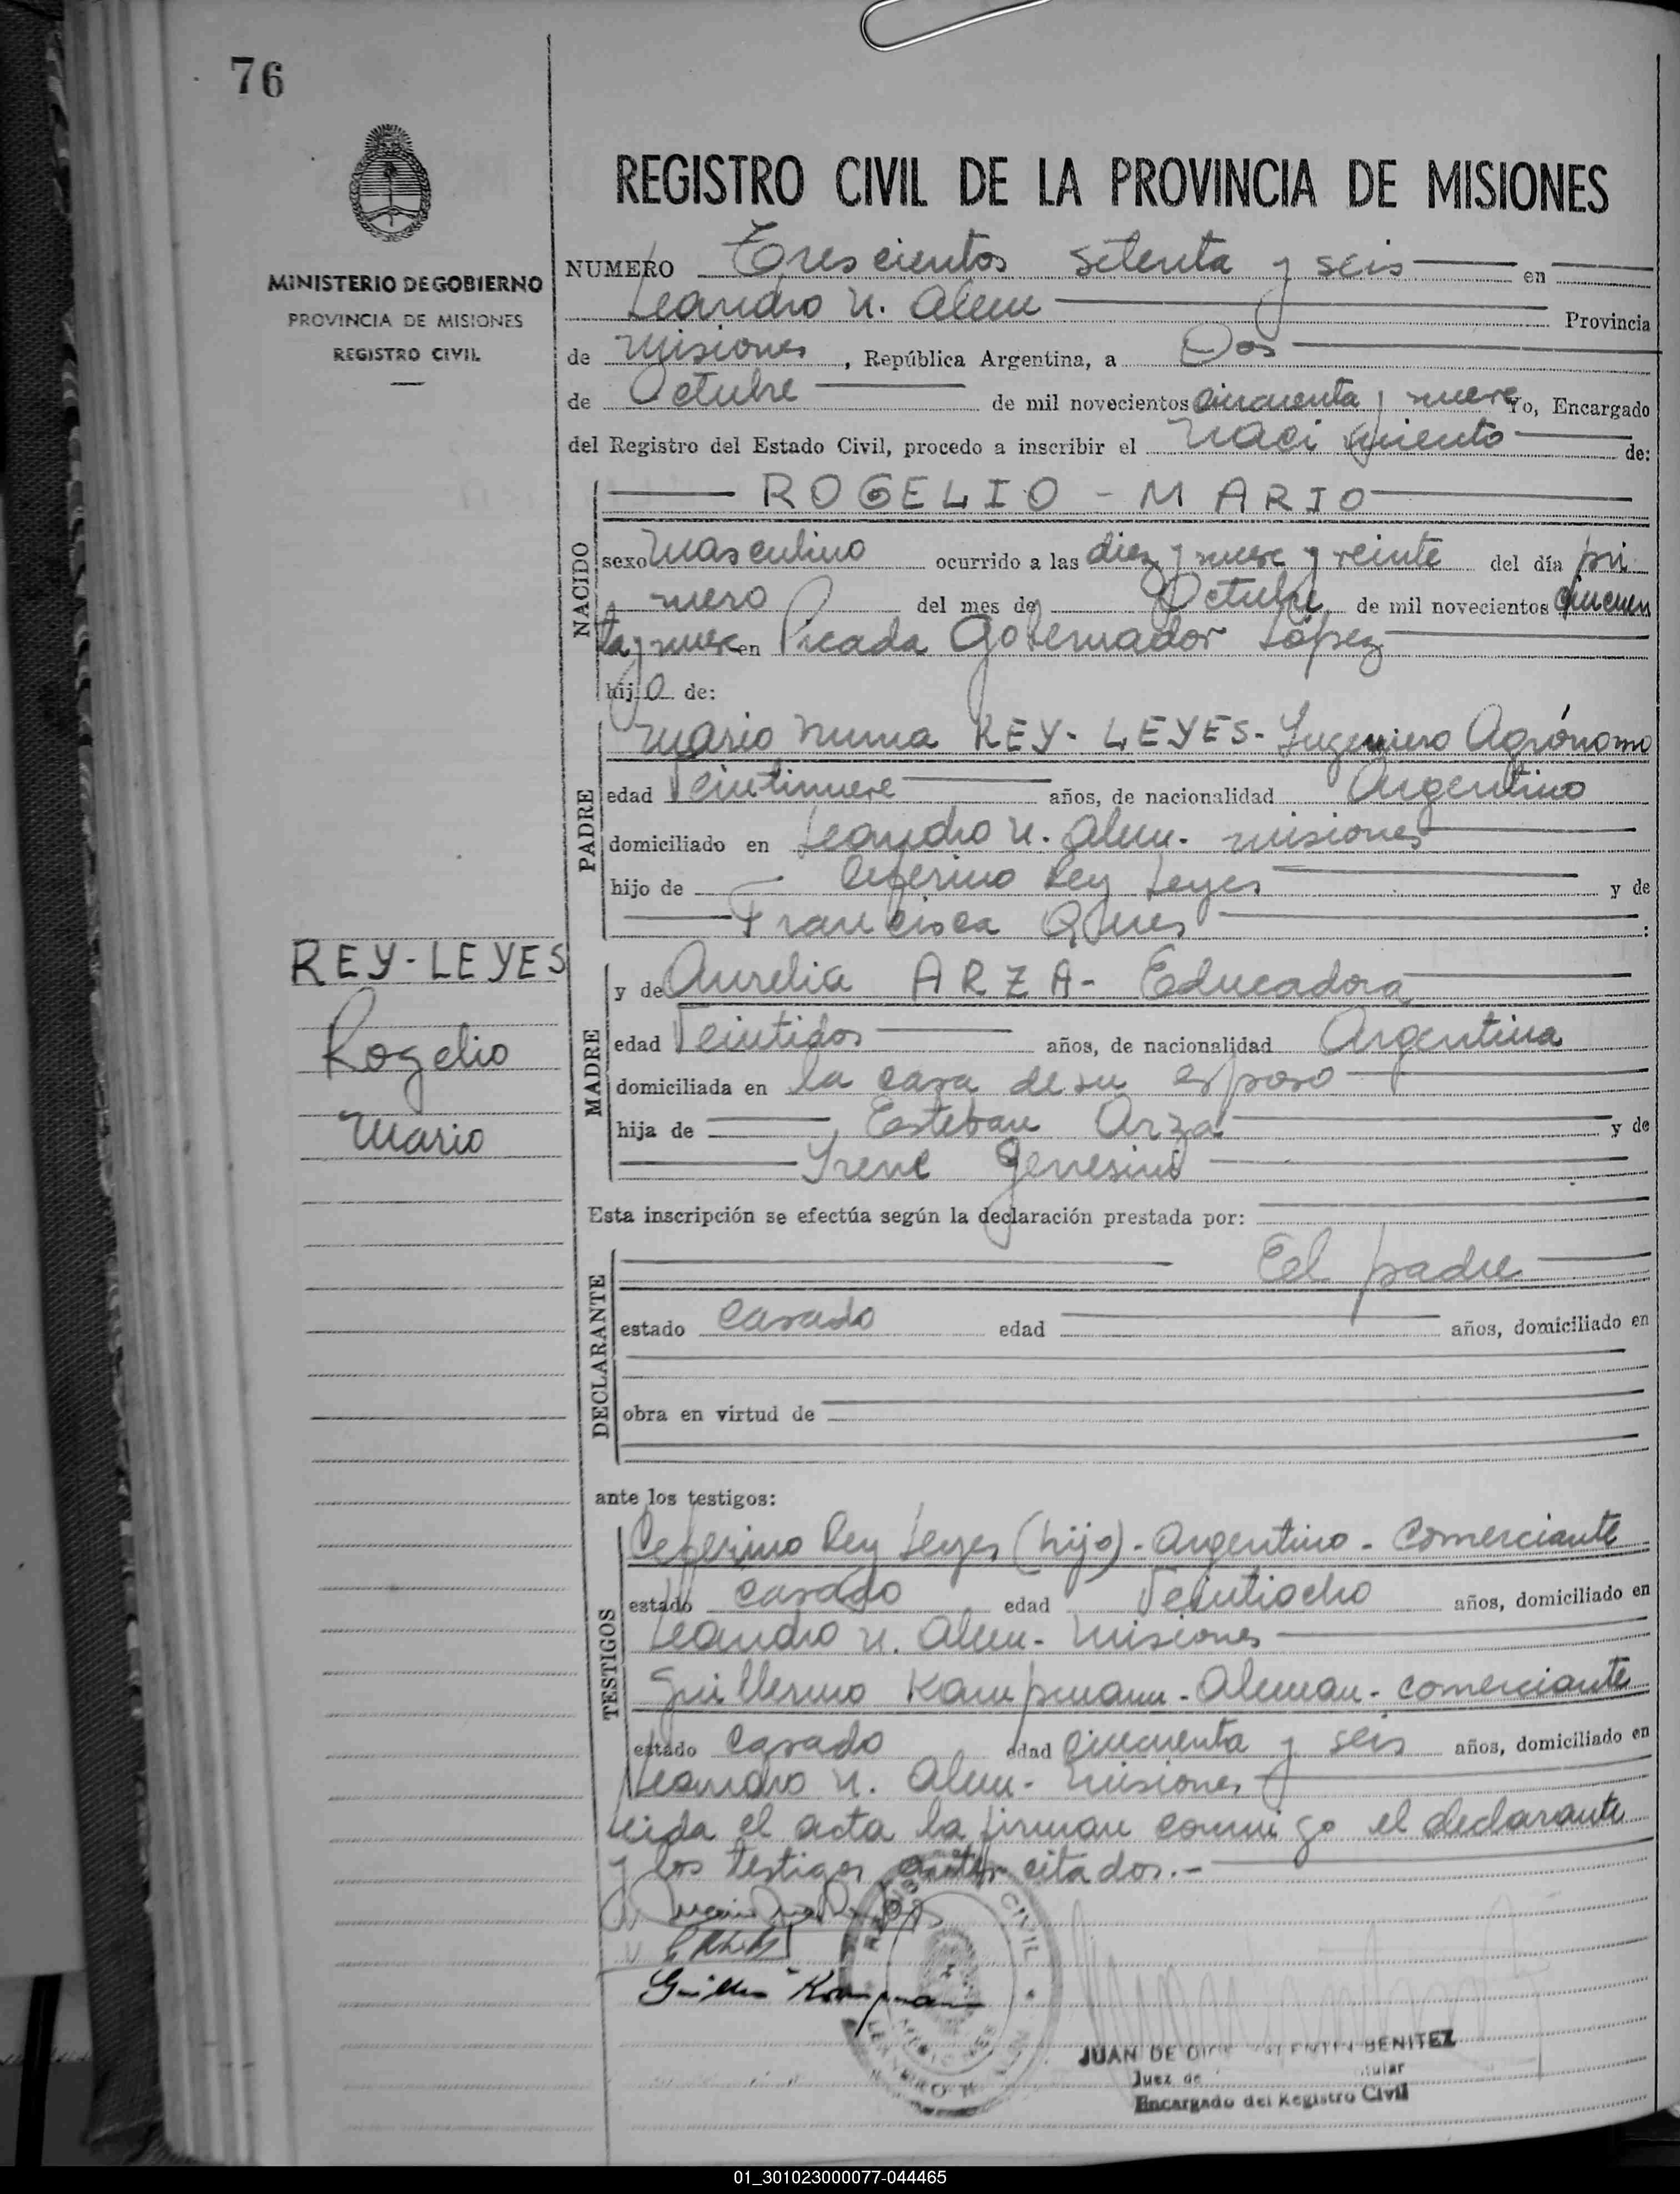 76
MINISTERIO DE GOBIERNO
PROVINCIA DE MISIONES
REGISTRO CIVIL
REGISTRO CIVIL DE LA PROVINCIA DE MISIONES
NUMERO Trescientos setenta y seis en
Leandro N. Alem Provincia
de Misiones, República Argentina, a Dos
de Octubre de mil novecientos cincuenta y nueve Yo, Encargado
del Registro del Estado Civil, procedo a inscribir el Nacimiento de:
NACIDO
ROGELIO - MARIO
sexo Masculino ocurrido a las diez y nueve y veinte del día pri
mero del mes de Octubre de mil novecientos cincuen
ta y nueve en Picada Gobernador López
hijo de:
PADRE
Mario Numa REY-LEYES- Ingeniero Agrónomo
edad Veintinueve años, de nacionalidad Argentino
domiciliado en Leandro N. Alem. Misiones
hijo de Ceferino Rey Leyes y de
Francisca
REY-LEYES
Rogelio
Mario
MADRE
y de Aurelia ARZA- Educadora
edad Veintidos años, de nacionalidad Argentina
domiciliada en la casa de su esposo
hija de Esteban Arza y de
Irene
Esta inscripción se efectúa según la declaración prestada por:
DECLARANTE
El padre
estado casado edad años, domiciliado en
obra en virtud de
ante los testigos:
TESTIGOS
Ceferino Rey Leyes (hijo)- Argentino - Comerciante
estado casado edad Veintiocho años, domiciliado en
Leandro N. Alem- Misiones
Guillermo Kampmann- Aleman- comerciante
estado casado edad cincuenta y seis años, domiciliado en
Leandro N. Alem- Misiones
Leida el acta la firman conmigo el declarante
y los testigos antes citados.-
JUAN DE DIOS BENITEZ
Juez de
Encargado del Registro Civil
01_301023000077-044465